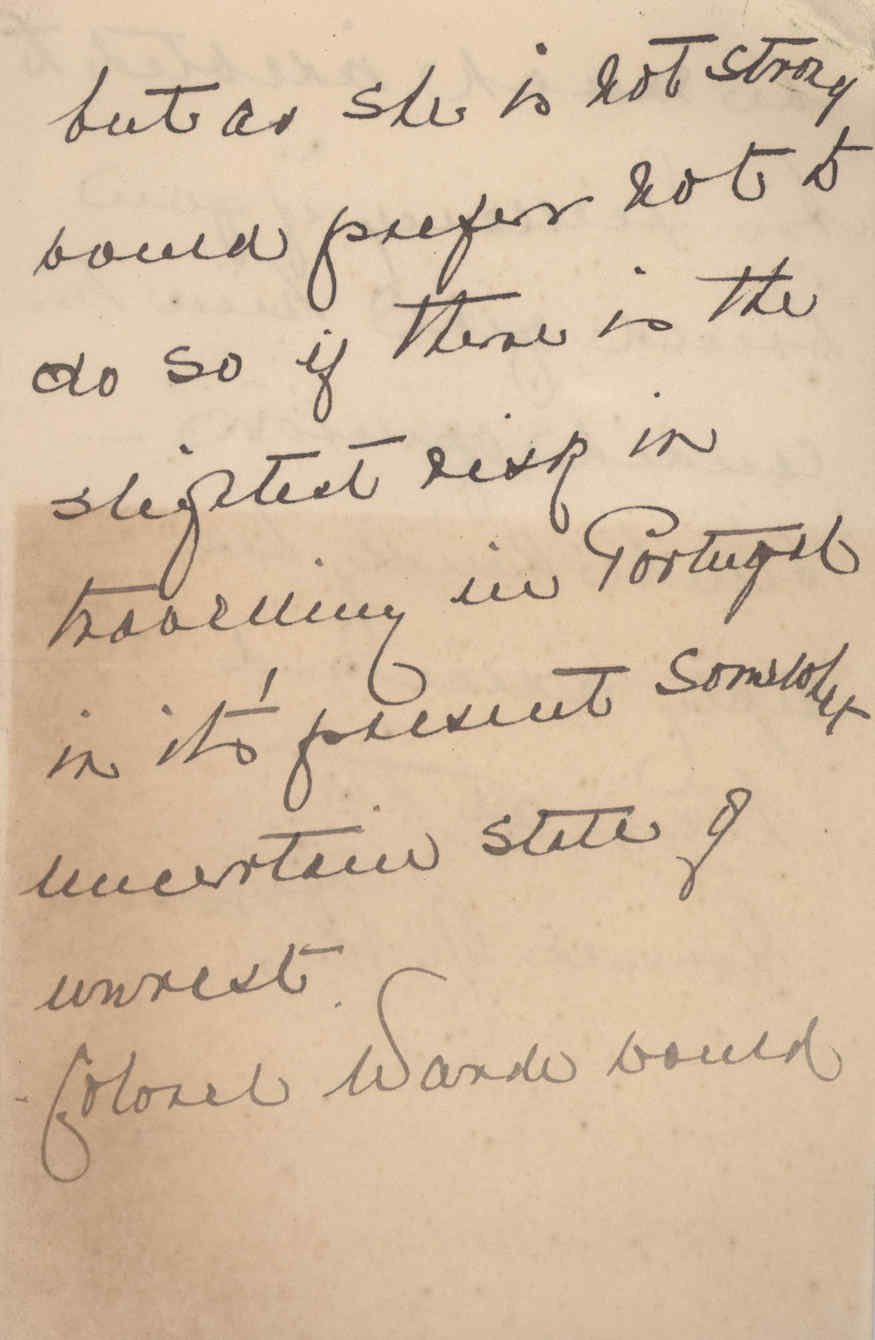 but as she is not strong
would prefer not to
do so if there is the
slightest risk in
travelling in Portugal
in it's present somewhat
uncertain state of
unrest.
Colonel Warde would